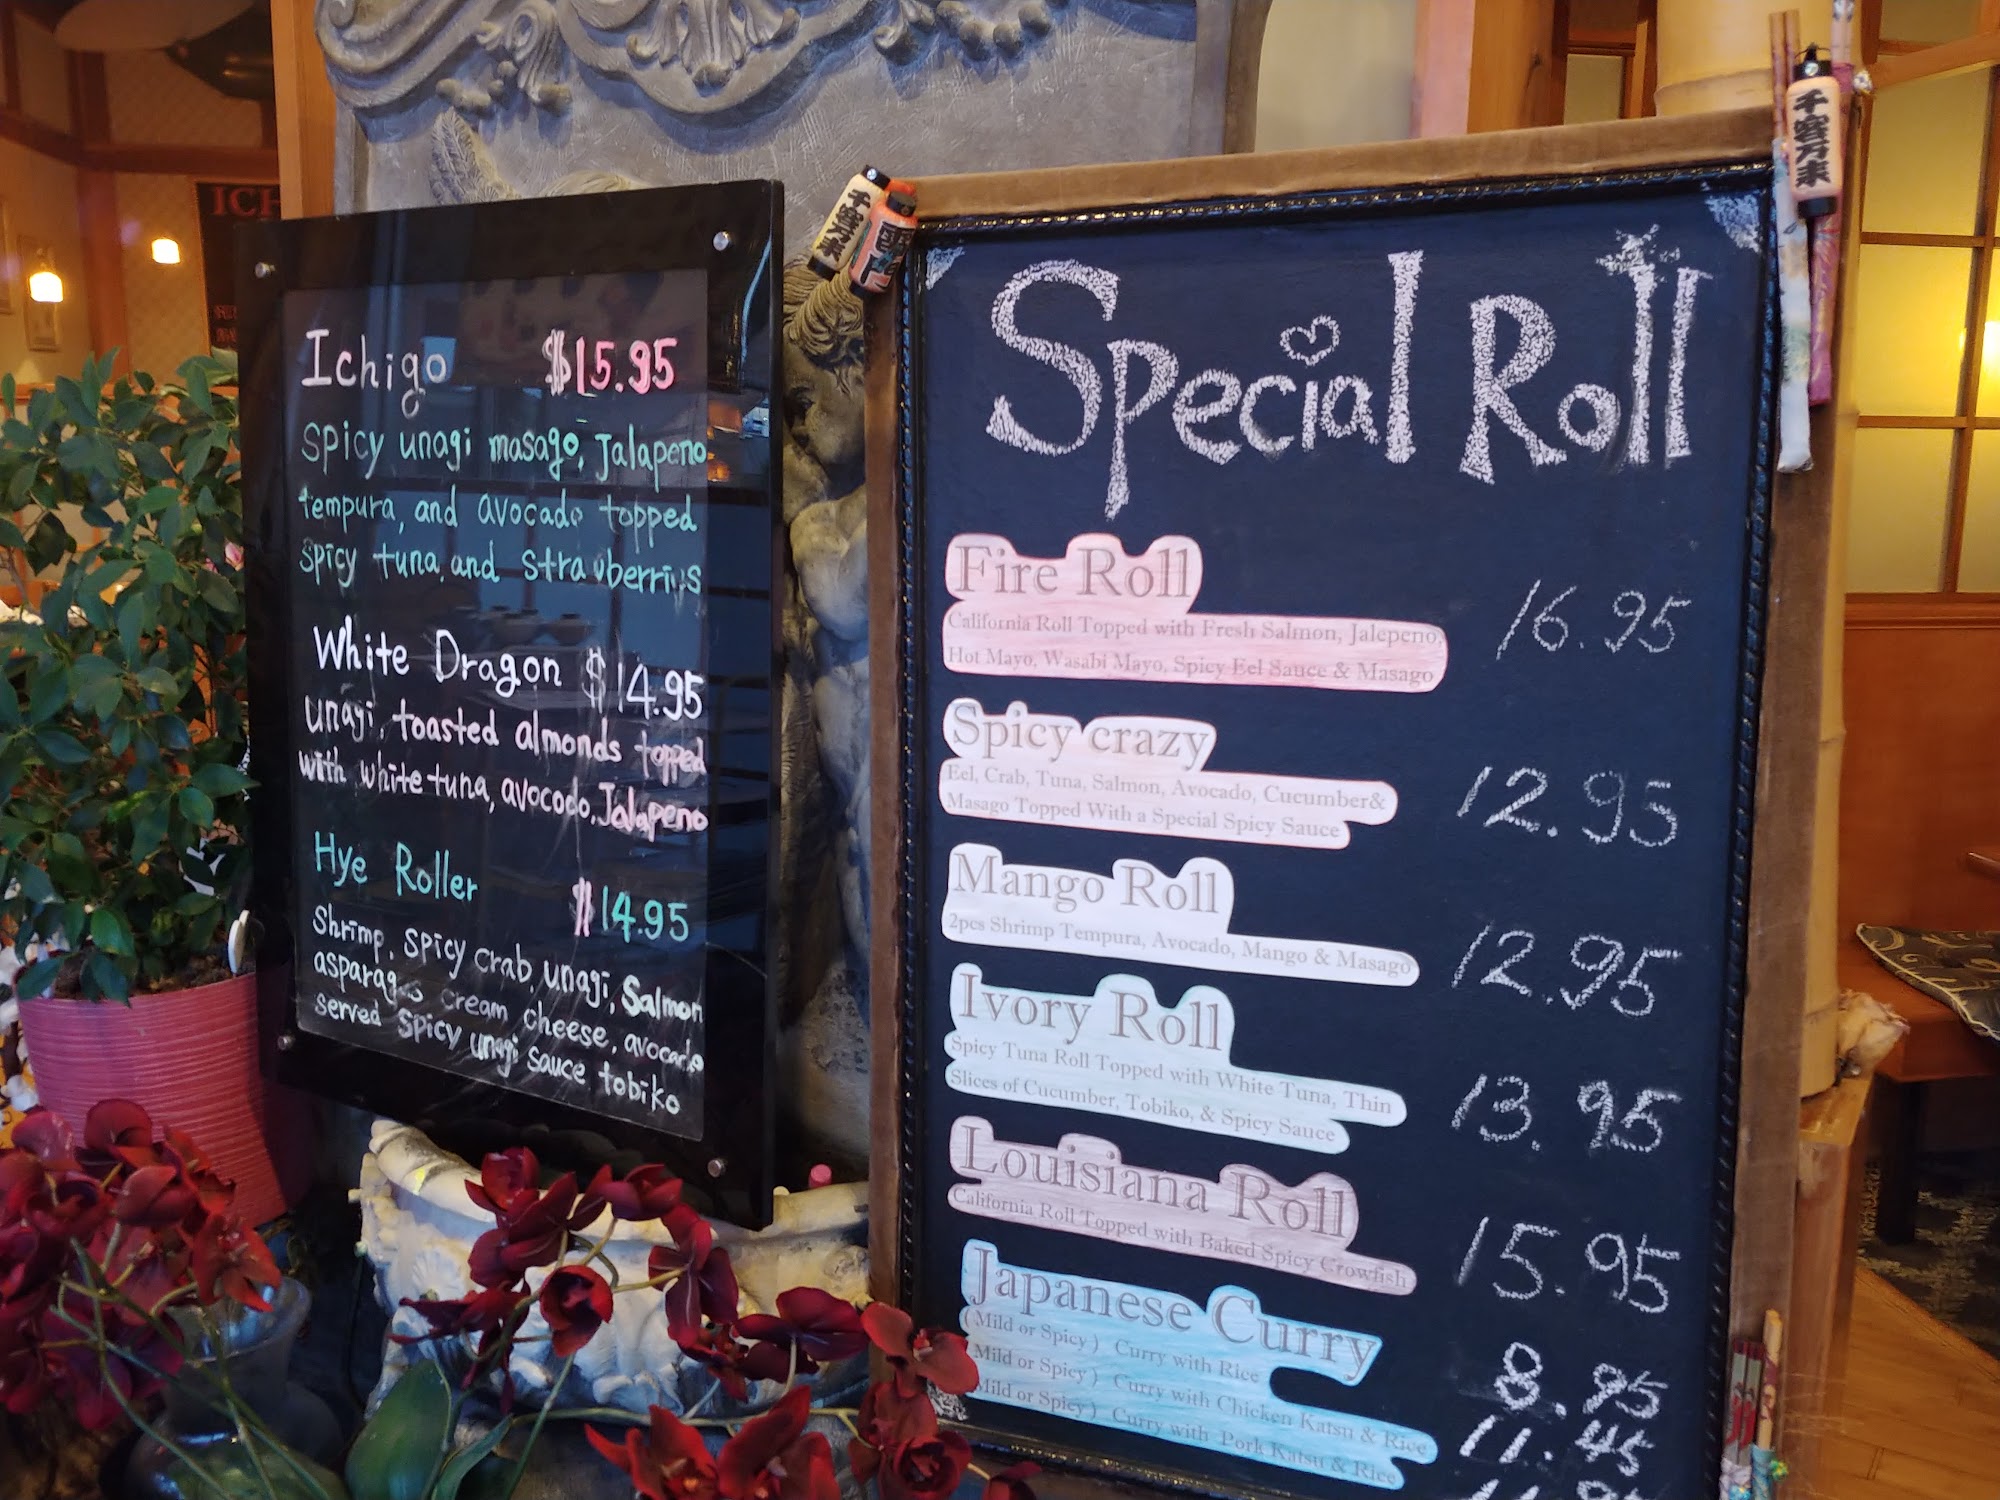 ICH
Ichigo $15.95
spicy unagi masago, Jalapeno
tempura, and avocado topped
spicy tuna, and strawberries
White Dragon $14.95
unagi, toasted almonds topped
with white tuna, avocodo, Jalapeno
Hye Roller $14.95
shrimp, spicy crab, unagi, Salmon
asparagus cream cheese, avocado
served spicy unagi sauce tobiko
千客万来
千客万来
Special Roll
Fire Roll 16.95
California Roll Topped with Fresh Salmon, Jalepeno,
Hot Mayo, Wasabi Mayo, Spicy Eel Sauce & Masago
Spicy crazy 12.95
Eel, Crab, Tuna, Salmon, Avocado, Cucumber&
Masago Topped With a Special Spicy Sauce
Mango Roll 12.95
2pcs Shrimp Tempura, Avocado, Mango & Masago
Ivory Roll 13.95
Spicy Tuna Roll Topped with White Tuna, Thin
Slices of Cucumber, Tobiko, & Spicy Sauce
Louisiana Roll 15.95
California Roll Topped with Baked Spicy Crowfish
Japanese Curry
(Mild or Spicy) Curry with Rice 8.95
Mild or Spicy) Curry with Chicken Katsu & Rice 11.45
Mild or Spicy) Curry with Pork Katsu & Rice